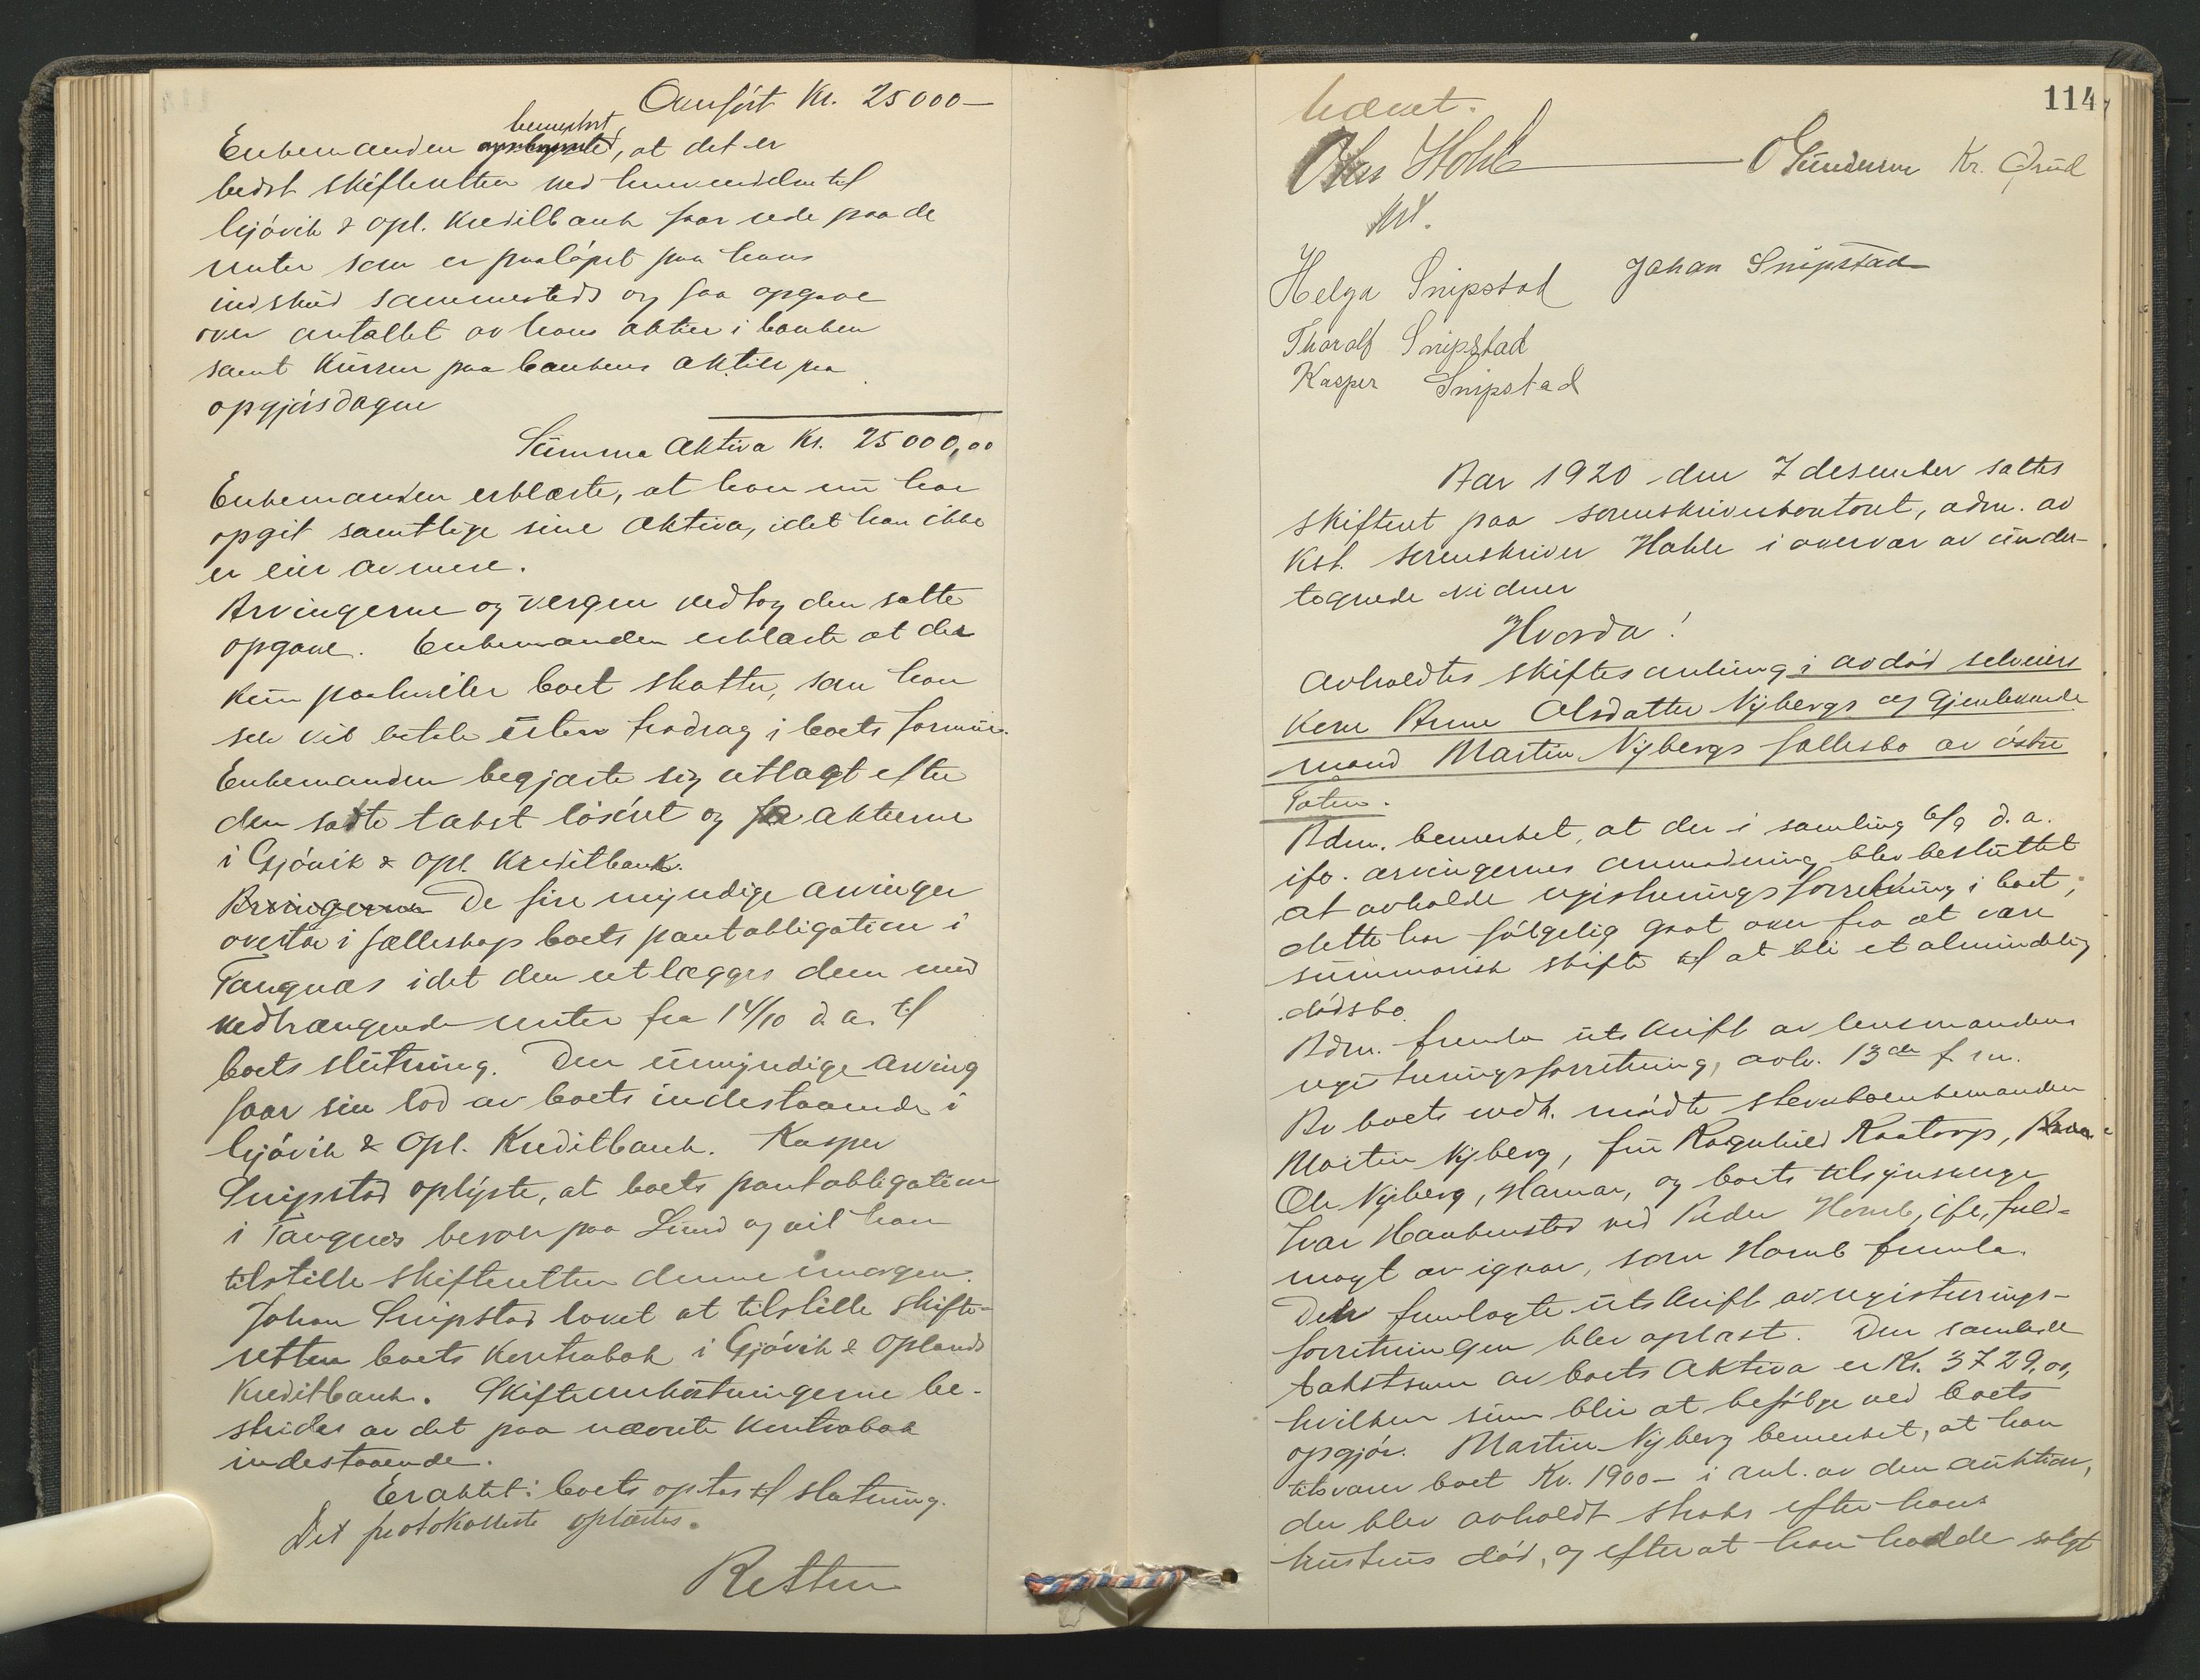 Overført Kr. 25000—
bemerket
Enkemanden , at det er
bedst skifteretten ved henvendelse til
Gjövik & Opl. Kreditbank faar rede paa de
renter som er paalöpet paa hans
indskud sammesteds og faa opgave
over antallet av hans aktier i banken
samt Kursen paa bankens aktier paa
opgjörsdagen
Summa Aktiva Kr. 25000,00
Enkemanden erklærte, at han nu har
opgit samtlige sine Aktiva, idet han ikke
er eier av mere.
Arvingerne og vergen vedtog den satte
opgave. Enkemanden erklærte at der
kun paahviler boet skatter, som han
selv vil betale uten fradrag i boets formue.
Enkemanden begjærte sig utlagt efter
den satte takst lösöret og aktierne
i Gjövik & Opl. Kreditbank.
Arvingerne De fire myndige arvinger
overtar i fælleskap boets pantobligation i
Tangnæs idet den utlægges dem med
vedhængende renter fra 14/10 d.a. til
boets slutning. Den umyndige arving
faar sin lod av boets indestaaende i
Gjövik & Opl. Kreditbank. Kasper
Snipstad oplyste, at boets pantobligation
i Tangnæs beror paa Lund og vil han
tilstille skifteretten denne imorgen.
Johan Snipstad lovet at tilstille skifte-
retten boets Kontrabok i Gjövik & Oplands
Kreditbank. Skifteomkostningerne be-
strides av det paa nævnte Kontrabok
indestaaende.
Eragtet: boets optas til slutning.
Det protokollerte oplæstes.
Retten
114
hævet.
Olav Hohle O Gundersen Kr. Qrud
kst.
Helga Snipstad Johan Snipstad
Thoralf Snipstad
Kasper Snipstad
Aar 1920 den 7 desember sattes
skifteret paa sorenskriverkontoret, adm. av
Kst. sorenskriver Hohle i overvær av under-
tegnede vidner
Hvorda!
Avholdtes skiftesamling i avdød selveier
Kone Anne Olsdatter Nybergs og gjenlevende
mand Martin Nybergs fællesbo av östre
Toten.
Adm. bemerket, at der i samling 6/9 d.a.
ifö. arvingernes anmodning blev besluttet
at avholde registreringsforretning i boet;
dette har fölgelig gaat over fra at være
summarisk skifte til at bli et almindelig
dödsbo.
Adm. fremla utskrift av lensmandens
registreringsforretning, avh. 13de f.m.
Av boets vedk. mödte stervboenkemanden
Martin Nyberg, fru Ragnhild Raatorp,
Ole Nyberg, Hamar, og boets tilsynsverge
Ivar Haukenstad ved Peder Homb, ifö. fuld-
magt av igaar, som Homb fremla.
Den fremlagte utskrift av registrerings-
forretningen blev oplæst. Den samlede
takstsum av boets Aktiva er Kr. 3729,00,
hvilken sum blir at befölge ved boets
opgjör. Martin Nyberg bemerket, at han
tilsvarer boet Kr. 1900— i anl. av den auktion,
der blev avholdt straks efter hans
hustrus död, og efterat han hadde solgt